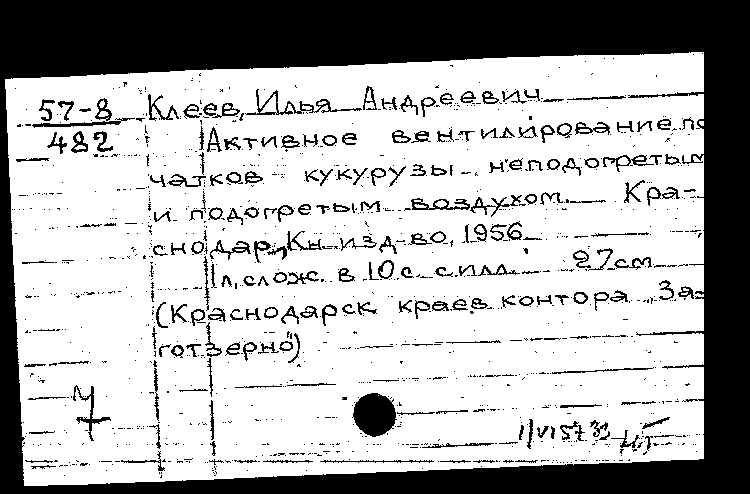 57-8 Клеев, Илья Андреевич
482 Активное вентилирование по
чатков кукурузы неподогретым
и подогретым воздухом. Кра-
снодар, Кн. изд-во, 1956
1 л, слож. в 10 с. с илл. 27 см
(Краснодарск. краев. контора "За-
готзерно")
1/VI 57